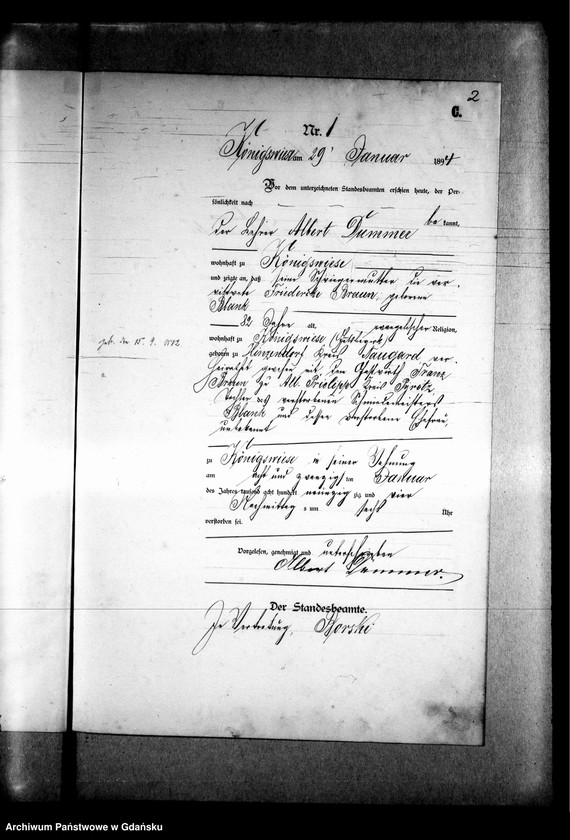 2
C.
Nr. 1
Königswiese am 29' Januar 1894
Vor dem unterzeichneten Standesbeamten erschien heute, der Per-
sönlichkeit nach
der Lehrer Albert Dummer be kannt,
wohnhaft zu Königswiese
und zeigte an, daß seine Schwiegermutter die ver-
wittwete Friedericke Braun, geborene
Blank
82 Jahre alt, evangelischer Religion,
wohnhaft zu Königswiese (Gutsbezirk)
geboren zu Kreis Naugard ver-
heirathet gewesen mit dem Gastwirth Franz
Braun zu Alt Kreis Pyritz
Tochter des verstorbenen Schmiedemeisters
Blank und dessen verstorbener Ehefrau,
unbekannt
zu Königswiese in seiner Wohnung
am acht und zwanzigsten Januar
des Jahres tausend acht hundert neunzig und vier
Nachmittags um sechs Uhr
verstorben sei.
Vorgelesen, genehmigt und unterschrieben
Albert Dummer.
Der Standesbeamte.
In Vertretung, Borski
geb. den 15. 9.
Archiwum Państwowe w Gdańsku